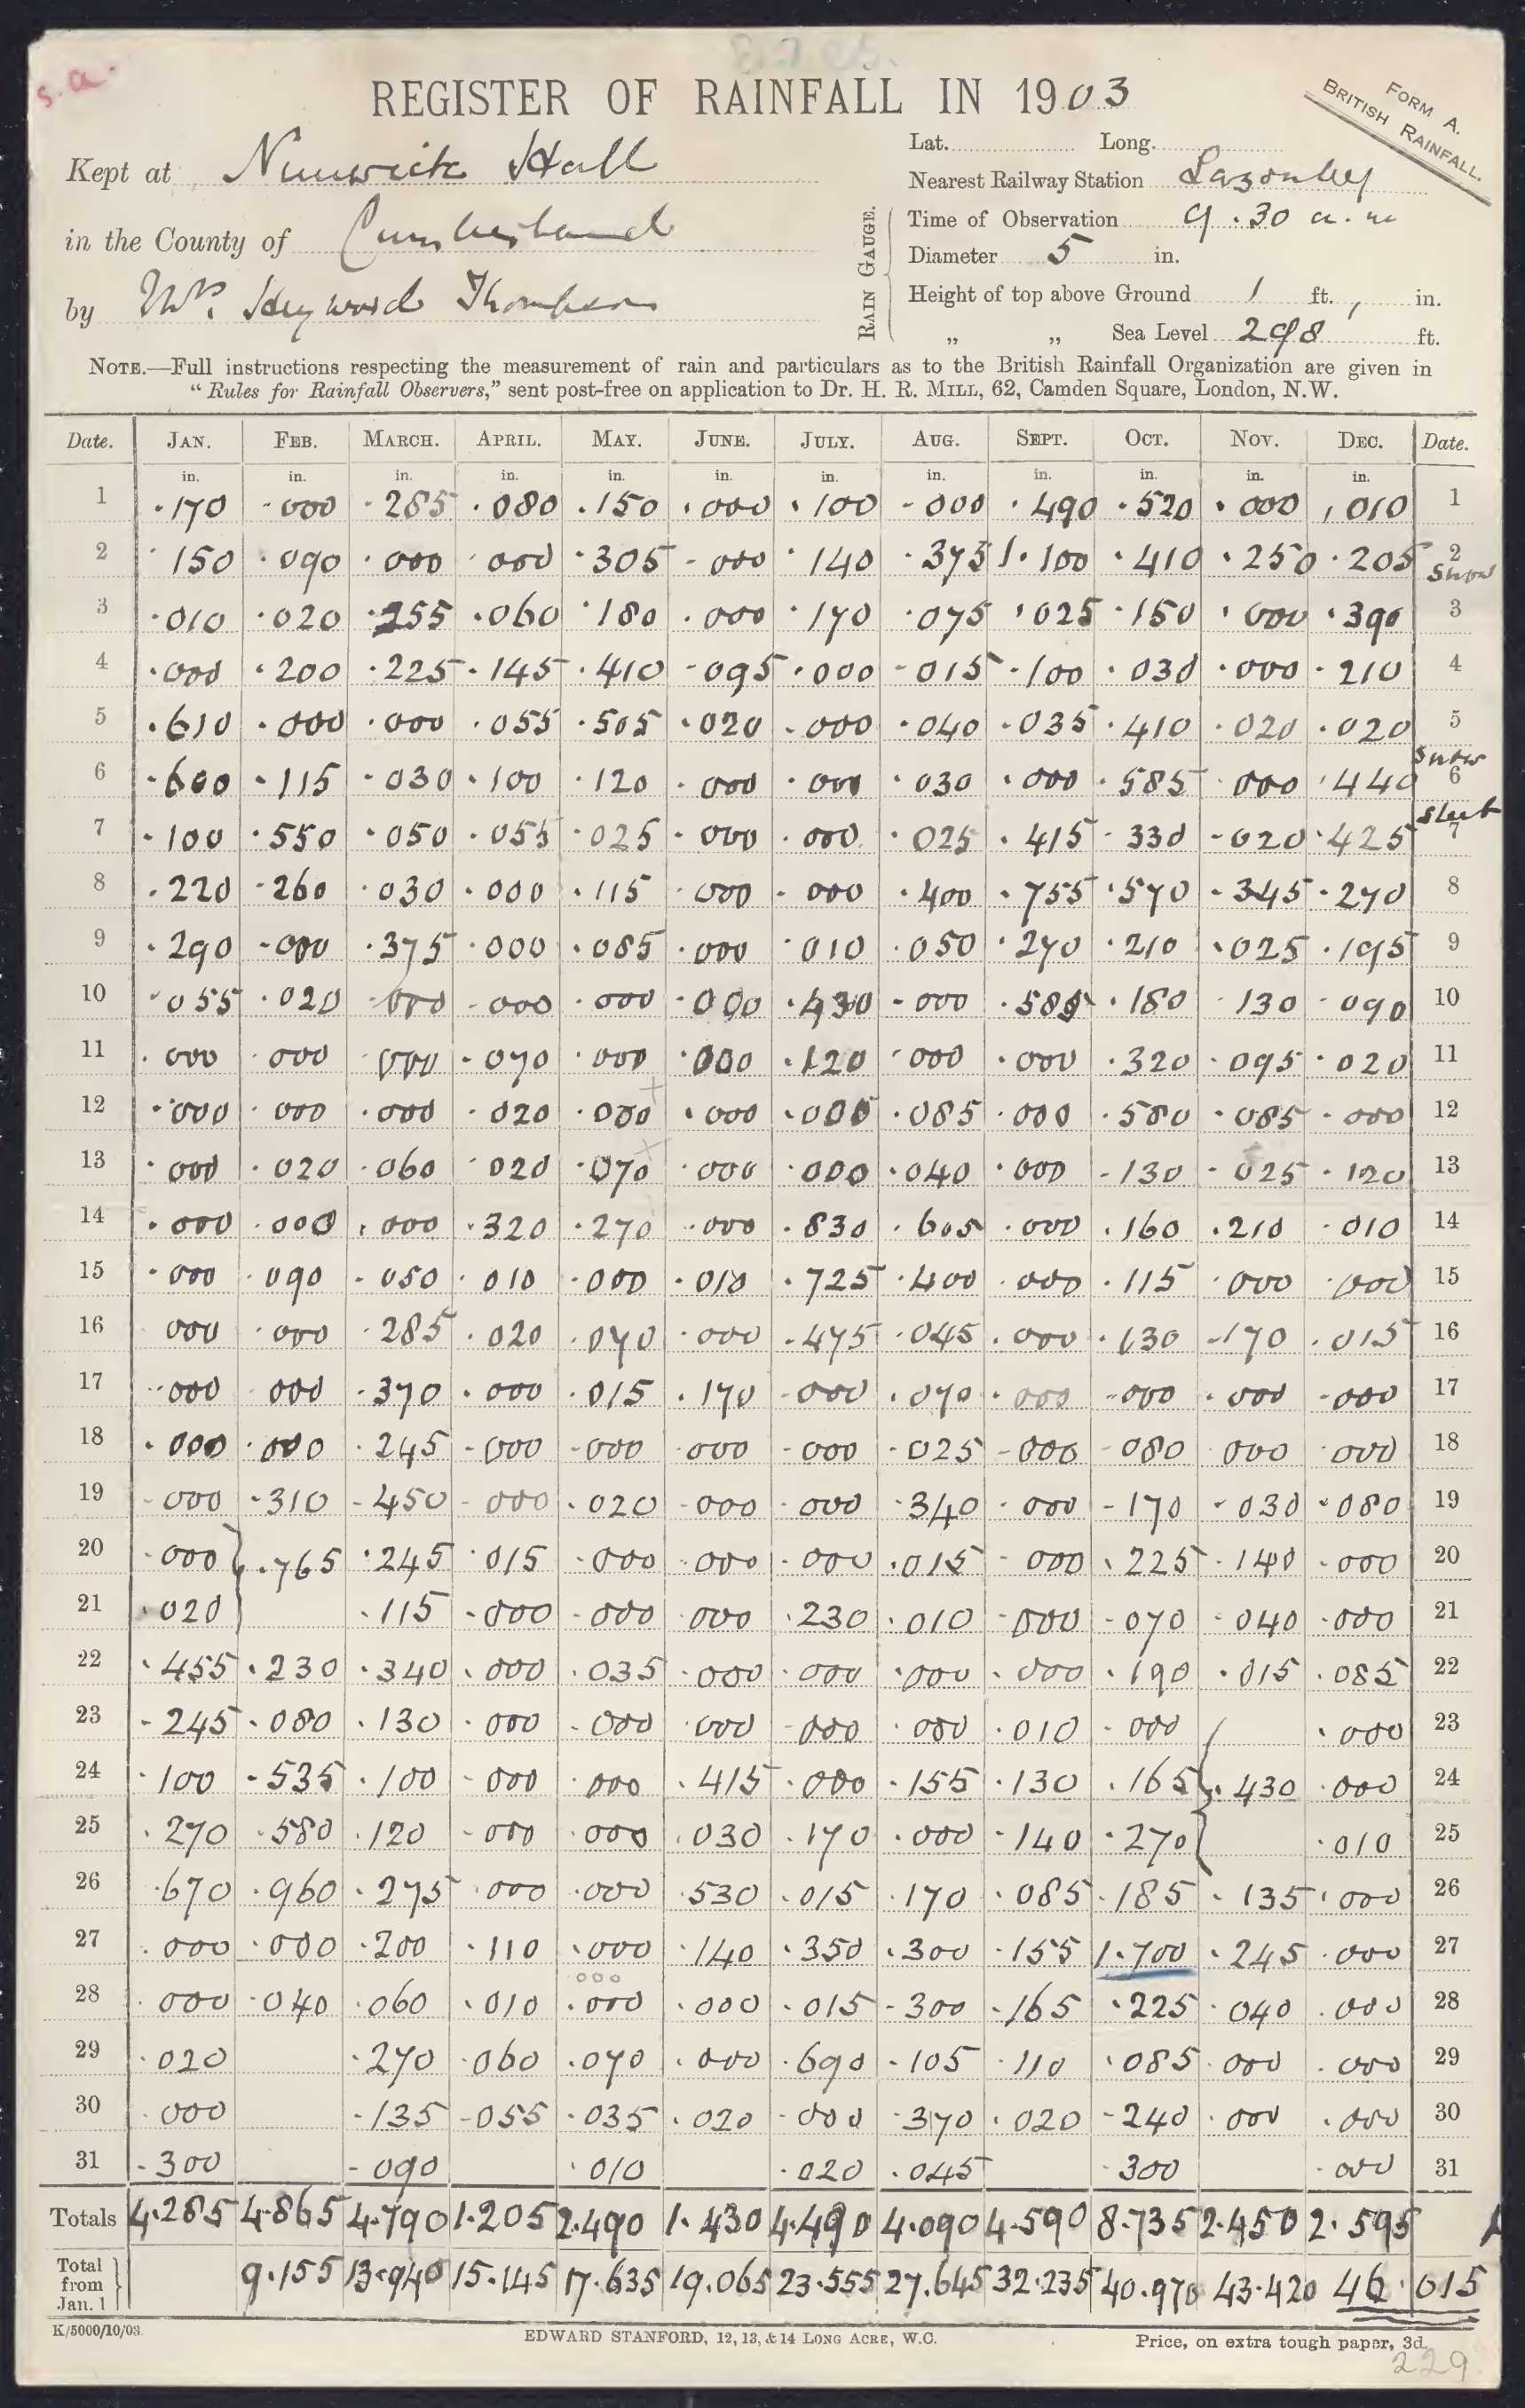 s.a.
REGISTER OF RAINFALL IN 1903
FORM A.
BRITISH RAINFALL.
Kept at Nunwick Hall
in the County of Cumberland
by Mr. Heywood Thompson
Lat. Long.
Nearest Railway Station Lazonby
RAIN GAUGE.
Time of Observation 9.30 a.m
Diameter 5 in.
Height of top above Ground 1 ft. , in.
„ „ Sea Level 298 ft.
NOTE.—Full instructions respecting the measurement of rain and particulars as to the British Rainfall Organization are given in
"Rules for Rainfall Observers," sent post-free on application to Dr. H. R. MILL, 62, Camden Square, London, N.W.
Date. JAN. FEB. MARCH. APRIL. MAY. JUNE. JULY. AUG. SEPT. OCT. NOV. DEC. Date.
in. in. in. in. in. in. in. in. in. in. in. in.
1 .170 .000 .285 .080 .150 .000 .100 .000 .490 .520 .000 .010 1
2 .150 .090 .000 .000 .305 .000 .140 .375 1.100 .410 .250 .205 2 Snow
3 .010 .020 .255 .060 .180 .000 .170 .075 .025 .150 .000 .390 3
4 .000 .200 .225 .145 .410 .095 .000 .015 .100 .030 .000 .210 4
5 .610 .000 .000 .055 .505 .020 .000 .040 .035 .410 .020 .020 5
6 .600 .115 .030 .100 .120 .000 .000 .030 .000 .585 .000 .440 Snow 6
7 .100 .550 .050 .055 .025 .000 .000 .025 .415 .330 .020 .425 Sleet 7
8 .220 .260 .030 .000 .115 .000 .000 .400 .755 .570 .345 .270 8
9 .290 .000 .375 .000 .085 .000 .010 .050 .270 .210 .025 .195 9
10 .055 .020 .000 .000 .000 .000 .430 .000 .585 .180 .130 .090 10
11 .000 .000 .000 .070 .000 .000 .120 .000 .000 .320 .095 .020 11
12 .000 .000 .000 .020 .000 .000 .000 .085 .000 .580 .085 .000 12
13 .000 .020 .060 .020 .070 .000 .000 .040 .000 .130 .025 .120 13
14 .000 .000 .000 .320 .270 .000 .830 .605 .000 .160 .210 .010 14
15 .000 .090 .050 .010 .000 .010 .725 .400 .000 .115 .000 .000 15
16 000 .000 .285 .020 .070 .000 .475 .045 .000 .130 .170 .015 16
17 .000 000 .370 .000 .015 .170 .000 .070 .000 .000 .000 .000 17
18 .000 .000 .245 .000 .000 .000 .000 .025 .000 .080 .000 .000 18
19 .000 .310 .450 .000 .020 .000 .000 .340 .000 .170 .030 .080 19
20 .000 .765 .245 .015 .000 .000 .000 .015 .000 .225 .140 .000 20
21 .020 .115 .000 .000 .000 .230 .010 .000 .070 .040 .000 21
22 .455 .230 .340 .000 .035 .000 .000 .000 .000 .190 .015 .085 22
23 .245 .080 .130 .000 .000 .000 .000 .000 .010 .000 .000 23
24 .100 .535 .100 .000 .000 .415 .000 .155 .130 .165 .430 .000 24
25 .270 .580 .120 .000 .000 .030 .170 .000 .140 .270 .010 25
26 .670 .960 .275 .000 .000 .530 .015 .170 .085 .185 .135 .000 26
27 .000 .000 .200 .110 .000 .140 .350 .300 .155 1.700 .245 .000 27
000
28 .000 .040 .060 .010 .000 .000 .015 .300 .165 .225 .040 .000 28
29 .020 .270 .060 .070 .000 .690 .105 .110 .085 .000 .000 29
30 .000 .135 .055 .035 .020 .000 .370 .020 .240 .000 .000 30
31 .300 .090 .010 .020 .045 .300 .000 31
Totals 4.285 4.865 4.790 1.205 2.490 1.430 4.490 4.090 4.590 8.735 2.450 2.595
Total from Jan. 1 9.155 13.940 15.145 17.635 19.065 23.555 27.645 32.235 40.970 43.420 46.015
K/5000/10/03.
EDWARD STANFORD, 12, 13, & 14 LONG ACRE, W.C.
Price, on extra tough paper, 3d.
229